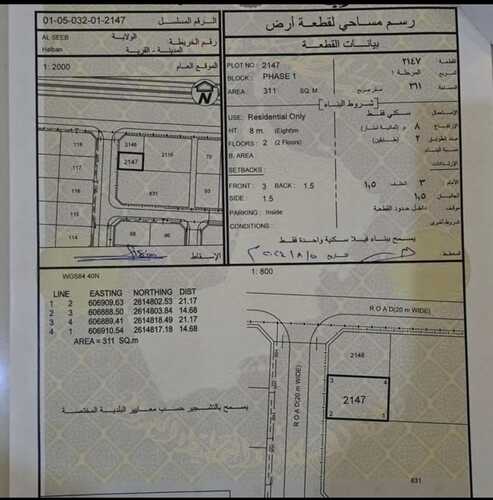 رسم مساحي لقطعة أرض
بيانات القطعة
01-05-032-01-2147 الرقم المسلسل
AL SEEB الولاية
Halban المدينة - القرية رقم الخريطة
1: 2000 الموقع العام
N
116
2148
2147
2116
79
631
PLOT NO : 2147 ٢١٤٧ القطعة
BLOCK : PHASE 1 المرحلة ١ المربع
AREA : 311 SQ. M متر مربع ٣١١ المساحة
شروط البناء
USE: Residential Only سكني فقط الإستعمال
HT 8 m. (Eight)m ٨ م (ثمانية امتار)
FLOORS : 2 (2 Floors) ٢ (طابقين)
B. AREA
SETBACKS: الإرتدادات
FRONT : 3 BACK : 1.5 ١,٥ الخلف ٣ الأمام
SIDE : 1.5 ١,٥
PARKING : Inside داخل حدود القطعة
CONDITIONS : شروط أخرى
يسمح ببناء فيلا سكنية واحدة فقط
الإسقاط
WGS84 40N
1 : 800
LINE EASTING NORTHING DIST
1 2 606909.63 2614802.53 21.17
2 3 606888.50 2614803.84 14.68
3 4 606889.41 2614818.49 21.17
4 1 606910.54 2614817.18 14.68
AREA = 311 SQ.m
يسمح بالتشجير حسب معايير البلدية المختصة
ROAD(20 m WIDE)
ROAD(20 m WIDE)
2148
3 4
2147
2 1
631